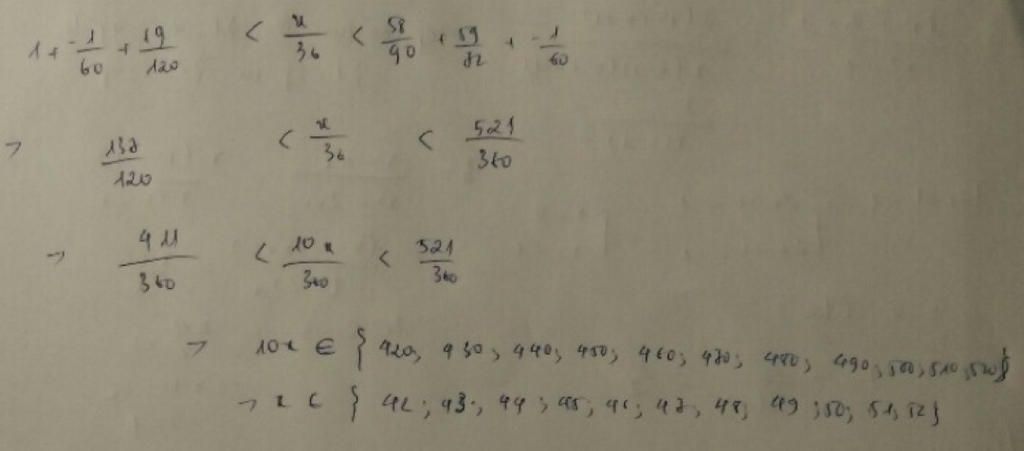 1 + \frac{-1}{60} + \frac{19}{120} < \frac{x}{36} < \frac{58}{90} + \frac{59}{72} + \frac{-1}{60}
→ \frac{137}{120} < \frac{x}{36} < \frac{521}{360}
→ \frac{411}{360} < \frac{10x}{360} < \frac{521}{360}
→ 10x ∈ { 420; 430; 440; 450; 460; 470; 480; 490; 500; 510; 520}
→ x ∈ { 42; 43; 44; 45; 46; 47; 48; 49; 50; 51; 52}